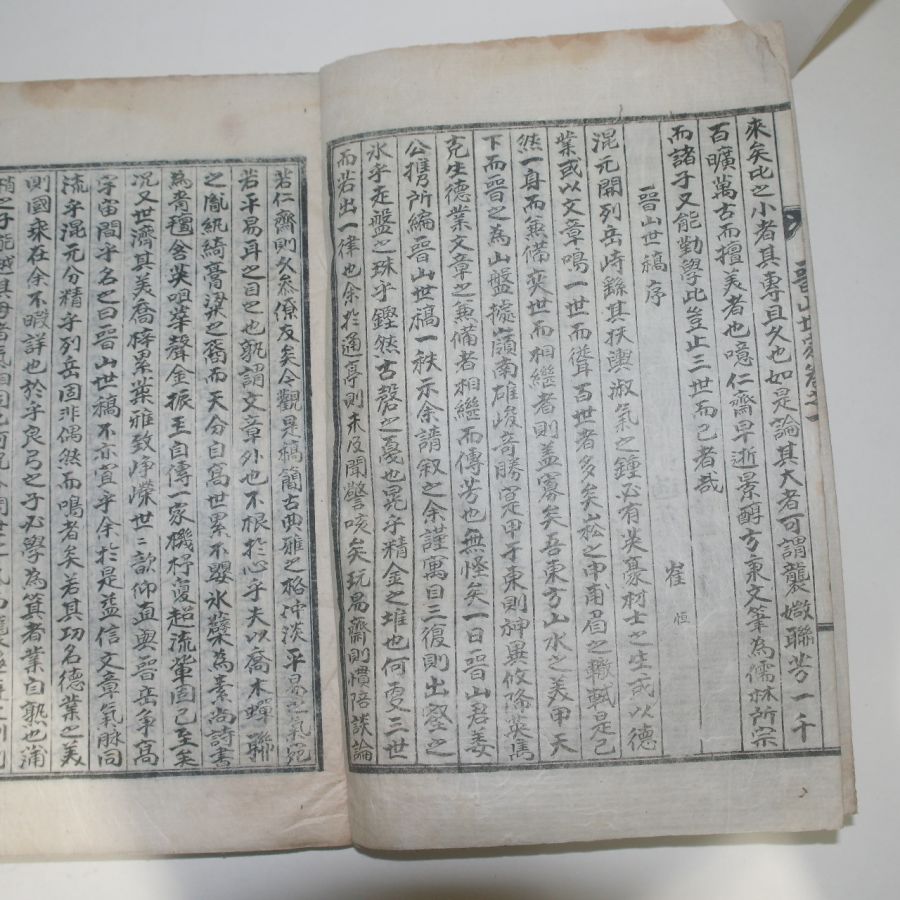 來矣比之小者其專且久也如是論其大者可謂襲媺聯芳一千
百曠萬古而擅美者也噫仁齋早逝景醇方秉文筆為儒林所宗
而諸子又能勤學此豈止三世而已者哉
晉山世稿序
崔恒
混元開列岳峙鍾其扶輿淑氣之鍾必有英豪材士之生或以德
業或以文章鳴一世而聳百世者多矣崧之申甫眉之轍軾是已
然一身而兼備奕世而相繼者則盖寡矣吾東方山水之美甲天
下而晉之為山盤據嶺南雄峻奇勝寔甲于東則神異攸降英雋
克生德業文章之兼備者相繼而傳芳也無怪矣一日晉山君姜
公携所編晉山世稿一秩示余請叙之余謹寓目三復則出壑之
氷乎走盤之珠乎鏗然古磬之戞也晃乎精金之堆也何更三世
而若出一律也余於通亭則未及聞謦咳矣玩易齋則慣陪談論
若仁齋則久忝僚友矣今觀是稿簡古典雅之格冲淡平易之氣宛
若平昔耳之目之也孰謂文章外也不根於心乎夫以喬木蟬聯
之胤紈綺膏粱之裔而天分自高世累不嬰氷蘗為素尚詩書
為菁擅含英咀華聲金振玉自傳一家機杼敻超流輩固已至矣
况又世濟其美喬梓累葉雅致崢嶸世世歆仰直與晉岳爭高
宇宙間乎名之曰晉山世稿不亦宜乎余於是益信文章氣脉同
流乎混元分精乎列岳固非偶然而鳴者矣若其功名德業之美
則國乘在余不暇詳也於乎良弓之子必學為箕者業自熟也浦